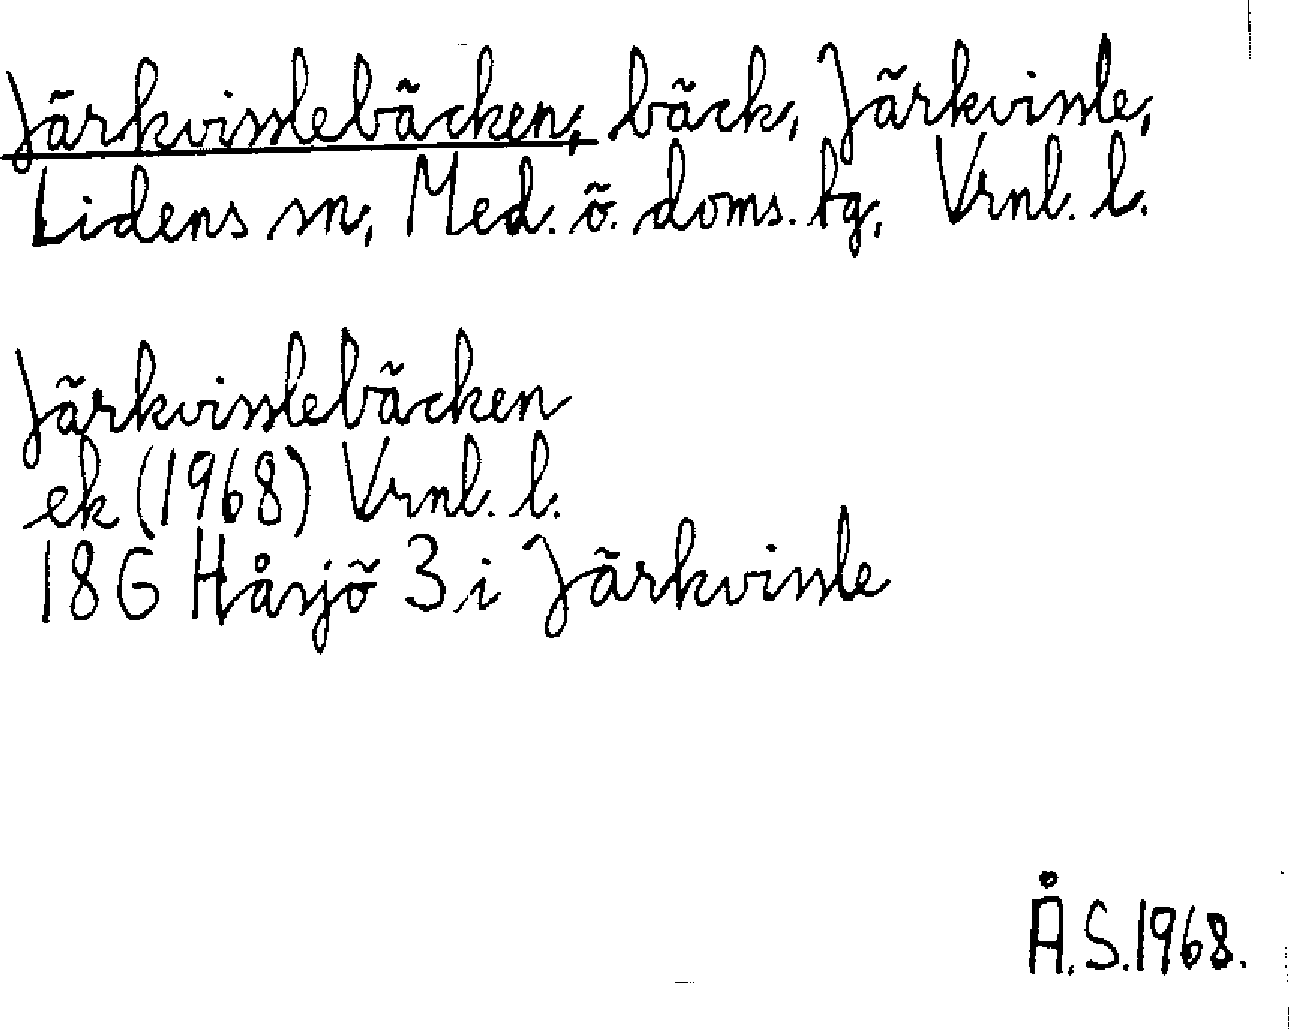 Järkvisslebäcken, bäck, Järkvissle,
Lidens sn, Med. ö. doms. tg, Vrnl. l.
Järkvisslebäcken
ek (1968) Vrnl. l.
18G Håsjö 3 i Järkvissle
Å.S.1968.